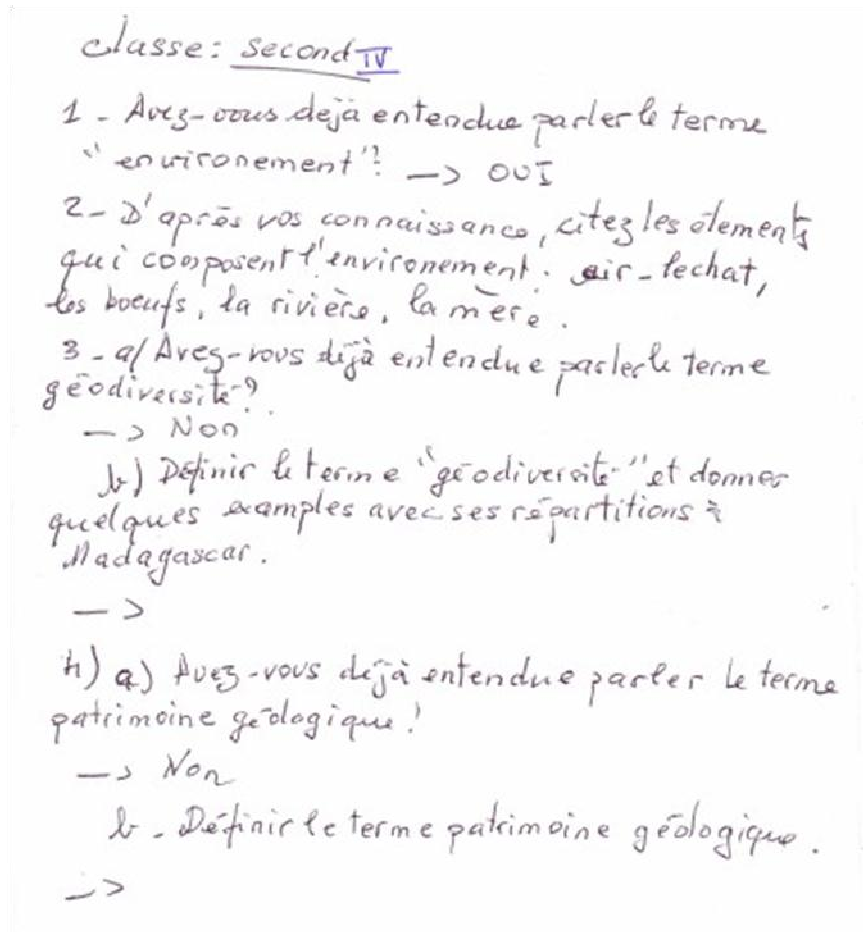 classe: second IV
1 - Avez-vous dejà entendue parler le terme
"environement"? -> OUI
2 - D'après vos connaissance, citez les élements
qui composent l'environement. air - lechat,
les boeufs, la rivière, la mère.
3 - a/ Avez-vous déjà entendue parler le terme
géodiversité?
-> Non
b) Définir le terme "géodiversité" et donner
quelques examples avec ses répartitions à
Madagascar.
->
4) a) Avez-vous déjà entendue parler le terme
patrimoine géologique!
-> Non
b - Définir le terme patrimoine géologique.
->